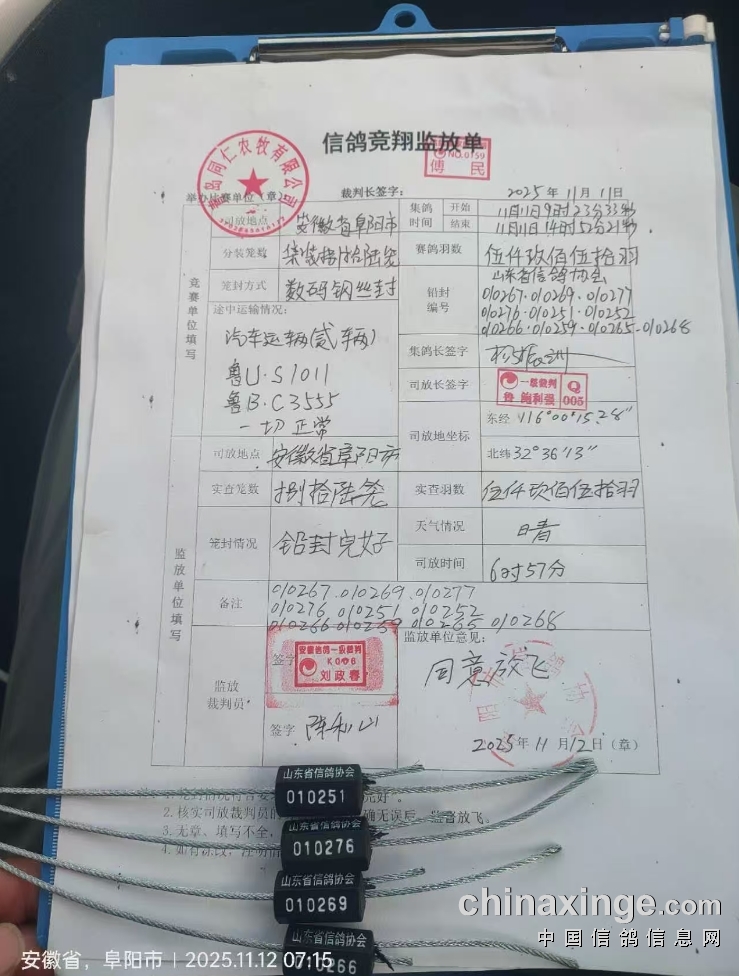 信鸽竞翔监放单
青岛同仁农牧有限公司
NO.0159
傅 民
举办比赛单位(章): 裁判长签字: 2025年11月11日
竞赛单位填写
司放地点 安徽省阜阳市 集鸽时间 开始 11月11日9时23分33秒
结束 11月11日14时52分21秒
分装笼数 捌拾陆笼 赛鸽羽数 伍仟玖佰伍拾羽
笼封方式 数码钢丝封 铅封编号 山东省信鸽协会
010267·010269·010277
010276·010251·010252
010266·010259·010265·010268
途中运输情况:
汽车运辆(贰辆)
鲁U·S1011
鲁B·C3555
一切正常
集鸽长签字
司放长签字 一级裁判 鲁 鲍利强 Q 005
司放地坐标 东经 116°00′15.28″
北纬 32°36′13″
监放单位填写
司放地点 安徽省阜阳市
实查笼数 捌拾陆笼 实查羽数 伍仟玖佰伍拾羽
笼封情况 铅封完好 天气情况 晴
司放时间 6时57分
备注 010267.010269.010277
010276 010251 010252
010266 010259 010265 010268
监放裁判员 签字 安徽信鸽一级裁判 K006 刘政春
签字 陈利山
监放单位意见:
同意放飞
2025年11月12日(章)
山东省信鸽协会
010251
2.核实司放裁判员的 确无误后,监督放飞。
山东省信鸽协会
010276
3.无章、填写不全,
山东省信鸽协会
010269
山东省信鸽协会
010266
chinaxinge.com
中国信鸽信息网
安徽省,阜阳市 | 2025.11.12 07:15